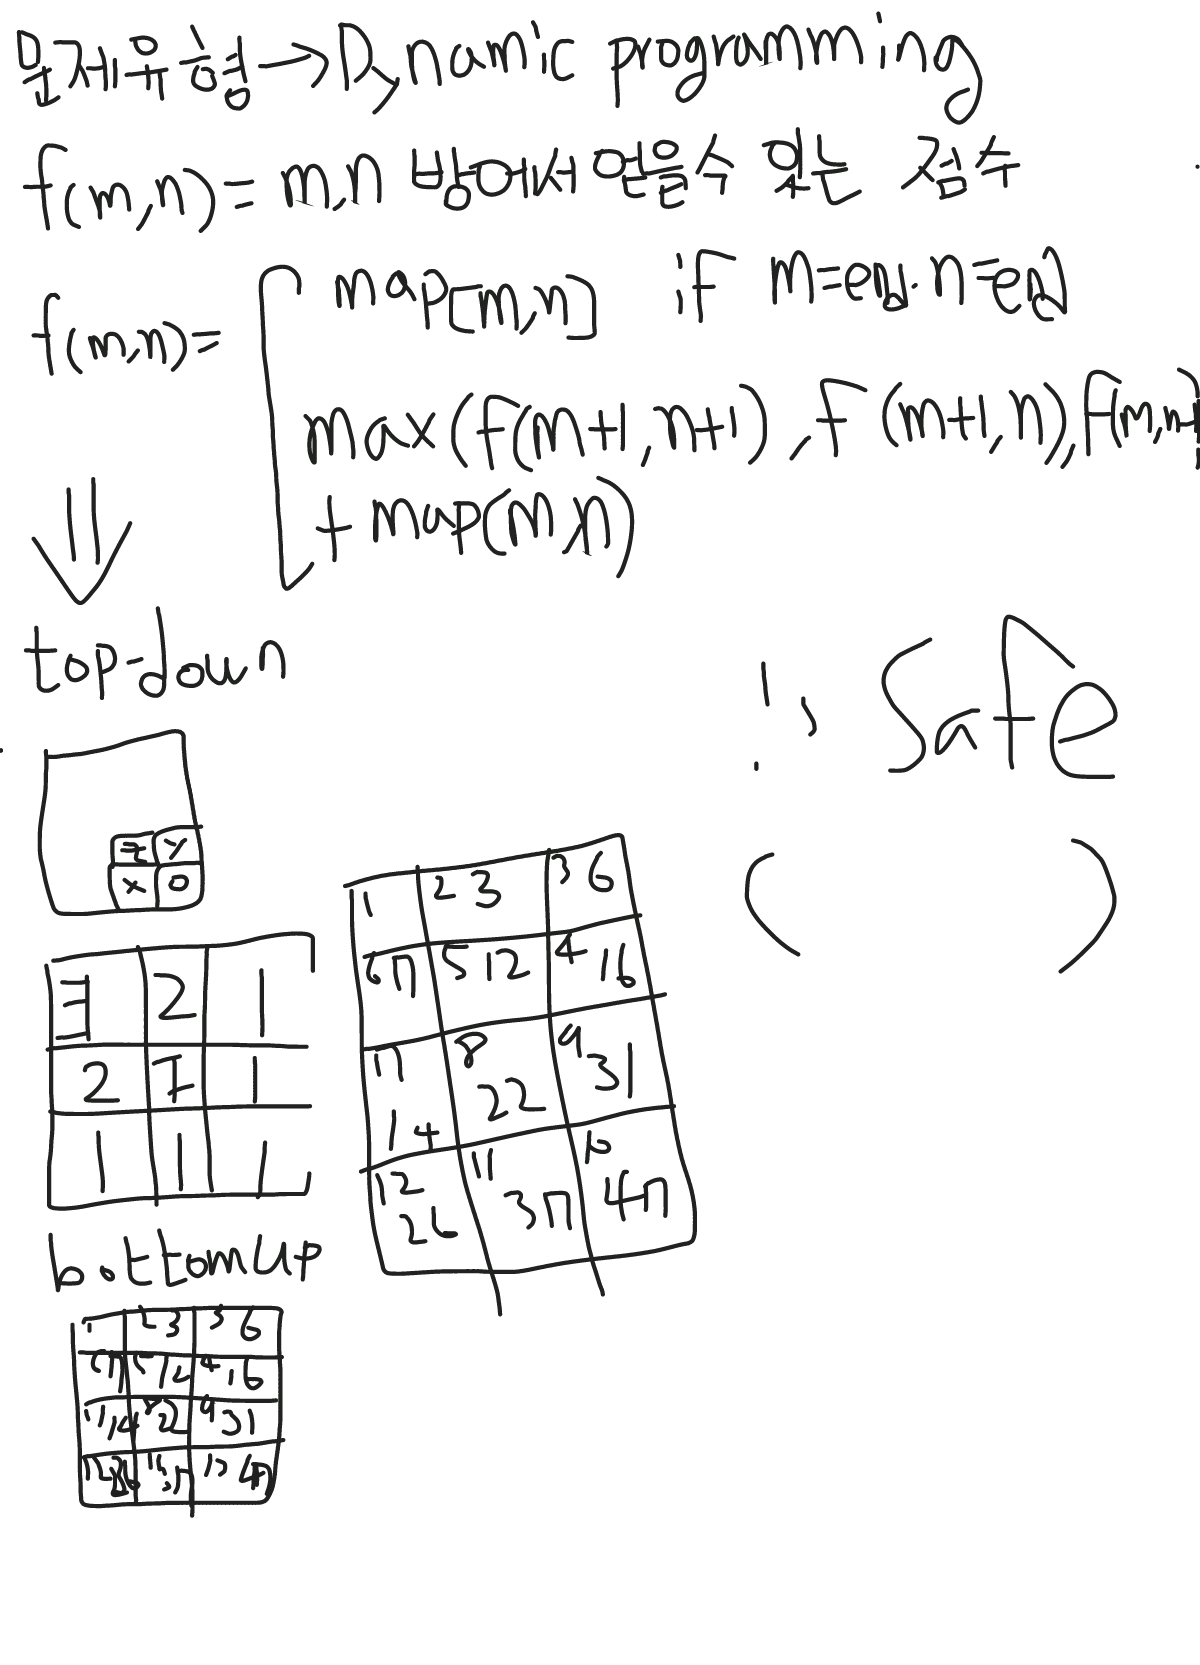 문제유형→Dynamic programming
f(m,n)= m,n 방에서 얻을수 있는 점수
f(m,n)=
map[m,n] if m=end. n=end
max(f(m+1,n+1), f(m+1,n), f(m,n+1)
+ map(m,n)
top-down
!, Safe
( )
z y
x 0
3 2 1
2 7 1
1 1 1
1 2 3 3 6
6 7 5 12 4 16
7 14 8 22 9 31
12 26 11 37 10 47
bottom up
1 2 3 3 6
6 7 5 12 4 16
7 14 8 22 9 31
12 26 11 37 10 47